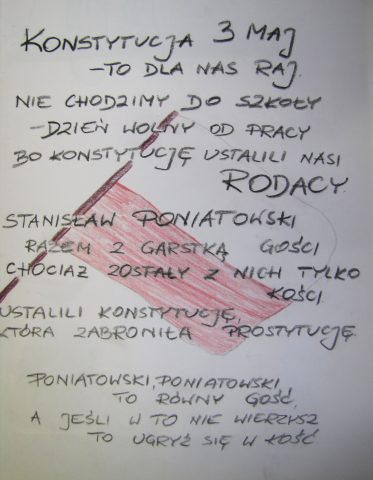 KONSTYTUCJA 3 MAJ
-TO DLA NAS RAJ.
NIE CHODZIMY DO SZKOŁY
-DZIEŃ WOLNY OD PRACY
BO KONSTYTUCJĘ USTALILI NASI
RODACY.
STANISŁAW PONIATOWSKI
RAZEM Z GARSTKĄ GOŚCI
CHOCIAŻ ZOSTAŁY Z NICH TYLKO
KOŚCI.
USTALILI KONSTYTUCJĘ,
KTÓRA ZABRONIŁA PROSTYTUCJĘ.
PONIATOWSKI, PONIATOWSKI
TO RÓWNY GOŚĆ,
A JEŚLI W TO NIE WIERZYSZ
TO UGRYŹ SIĘ W KOŚĆ.